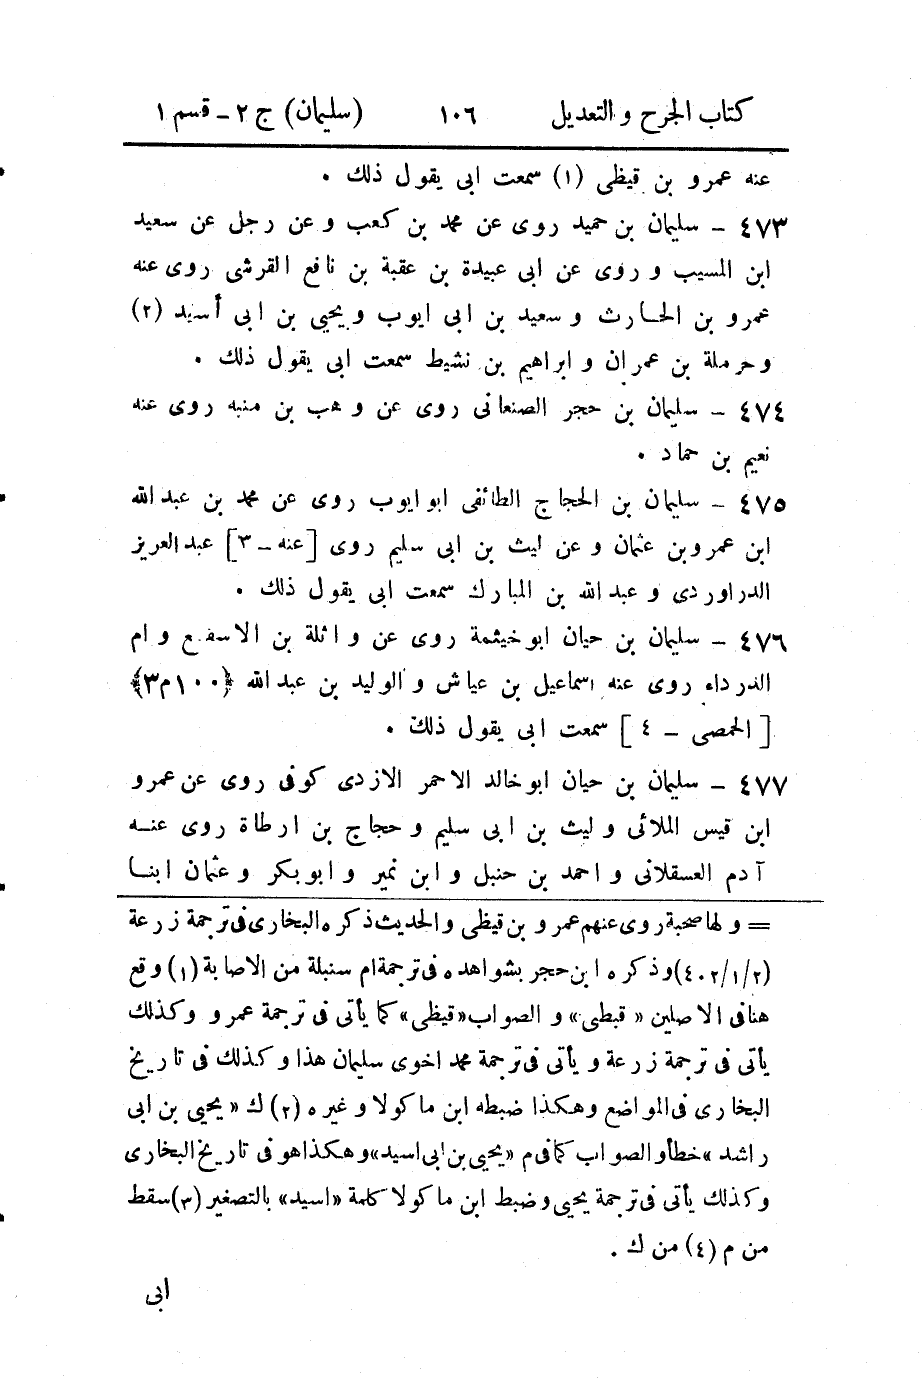 كتاب الجرح و التعديل ١٠٦ (سليمان) ج ٢ - قسم ١
عنه عمرو بن قيظى (١) سمعت ابى يقول ذلك .
٤٧٣ - سليمان بن حميد روى عن محمد بن كعب و عن رجل عن سعيد
ابن المسيب و روى عن ابى عبيدة بن عقبة بن نافع القرشى روى عنه
عمرو بن الحارث و سعيد بن ابى ايوب و يحيى بن ابى أسيد (٢)
و حرملة بن عمران و ابراهيم بن نشيط سمعت ابى يقول ذلك .
٤٧٤ - سليمان بن حجر الصنعانى روى عن وهب بن منبه روى عنه
نعيم بن حماد .
٤٧٥ - سليمان بن الحجاج الطائفى ابو ايوب روى عن محمد بن عبد الله
ابن عمرو بن عثمان و عن ليث بن ابى سليم روى [عنه - ٣] عبد العزيز
الدراوردى و عبد الله بن المبارك سمعت ابى يقول ذلك .
٤٧٦ - سليمان بن حيان ابو خيثمة روى عن واثلة بن الاسقع و ام
الدرداء روى عنه اسماعيل بن عياش و الوليد بن عبد الله ﴿١٠٠م٣﴾
[الحمصى - ٤] سمعت ابى يقول ذلك .
٤٧٧ - سليمان بن حيان ابو خالد الاحمر الازدى كوفى روى عن عمرو
ابن قيس الملائى و ليث بن ابى سليم و حجاج بن ارطاة روى عنه
آدم العسقلانى و احمد بن حنبل و ابن نمير و ابو بكر و عثمان ابنا
= و لها صحبة روى عنهم عمرو بن قيظى و الحديث ذكره البخارى فى ترجمة زرعة
(٤٠٢/١/٢) وذكره ابن حجر بشواهده فى ترجمة ام سنبلة من الاصابة (١) وقع
هنا فى الاصلين « قبطى » و الصواب «قيظى» كما يأتى فى ترجمة عمرو و كذلك
يأتى فى ترجمة زرعة و يأتى فى ترجمة محمد اخوى سليمان هذا و كذلك فى تاريخ
البخارى فى المواضع وهكذا ضبطه ابن ماكولا و غيره (٢) ك « يحيى بن ابى
راشد » خطأ والصواب كما فى م «يحيى بن ابى اسيد» وهكذا هو فى تاريخ البخارى
وكذلك يأتى فى ترجمة يحيى وضبط ابن ماكولا كلمة «اسيد» بالتصغير (٣) سقط
من م (٤) من ك .
ابى